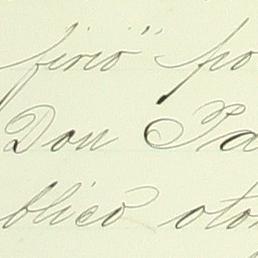 firió" po
Don Pa
blico oto